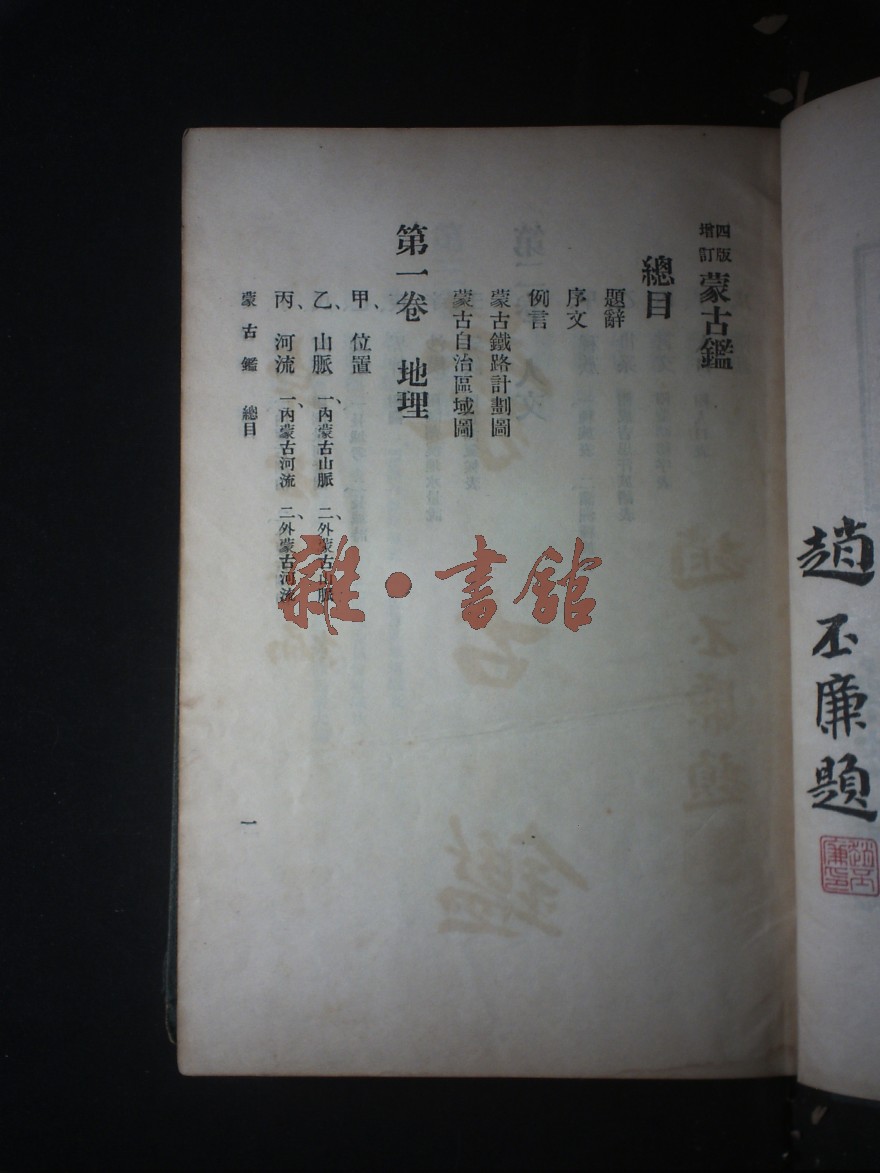 趙丕廉題
四版增訂蒙古鑑
總目
題辭
序文
例言
蒙古鐵路計劃圖
蒙古自治區域圖
第一卷 地理
甲、位置
乙、山脈 一、內蒙古山脈 二、外蒙古山脈
丙、河流 一、內蒙古河流 二、外蒙古河流
蒙古鑑 總目
一
雜·書館